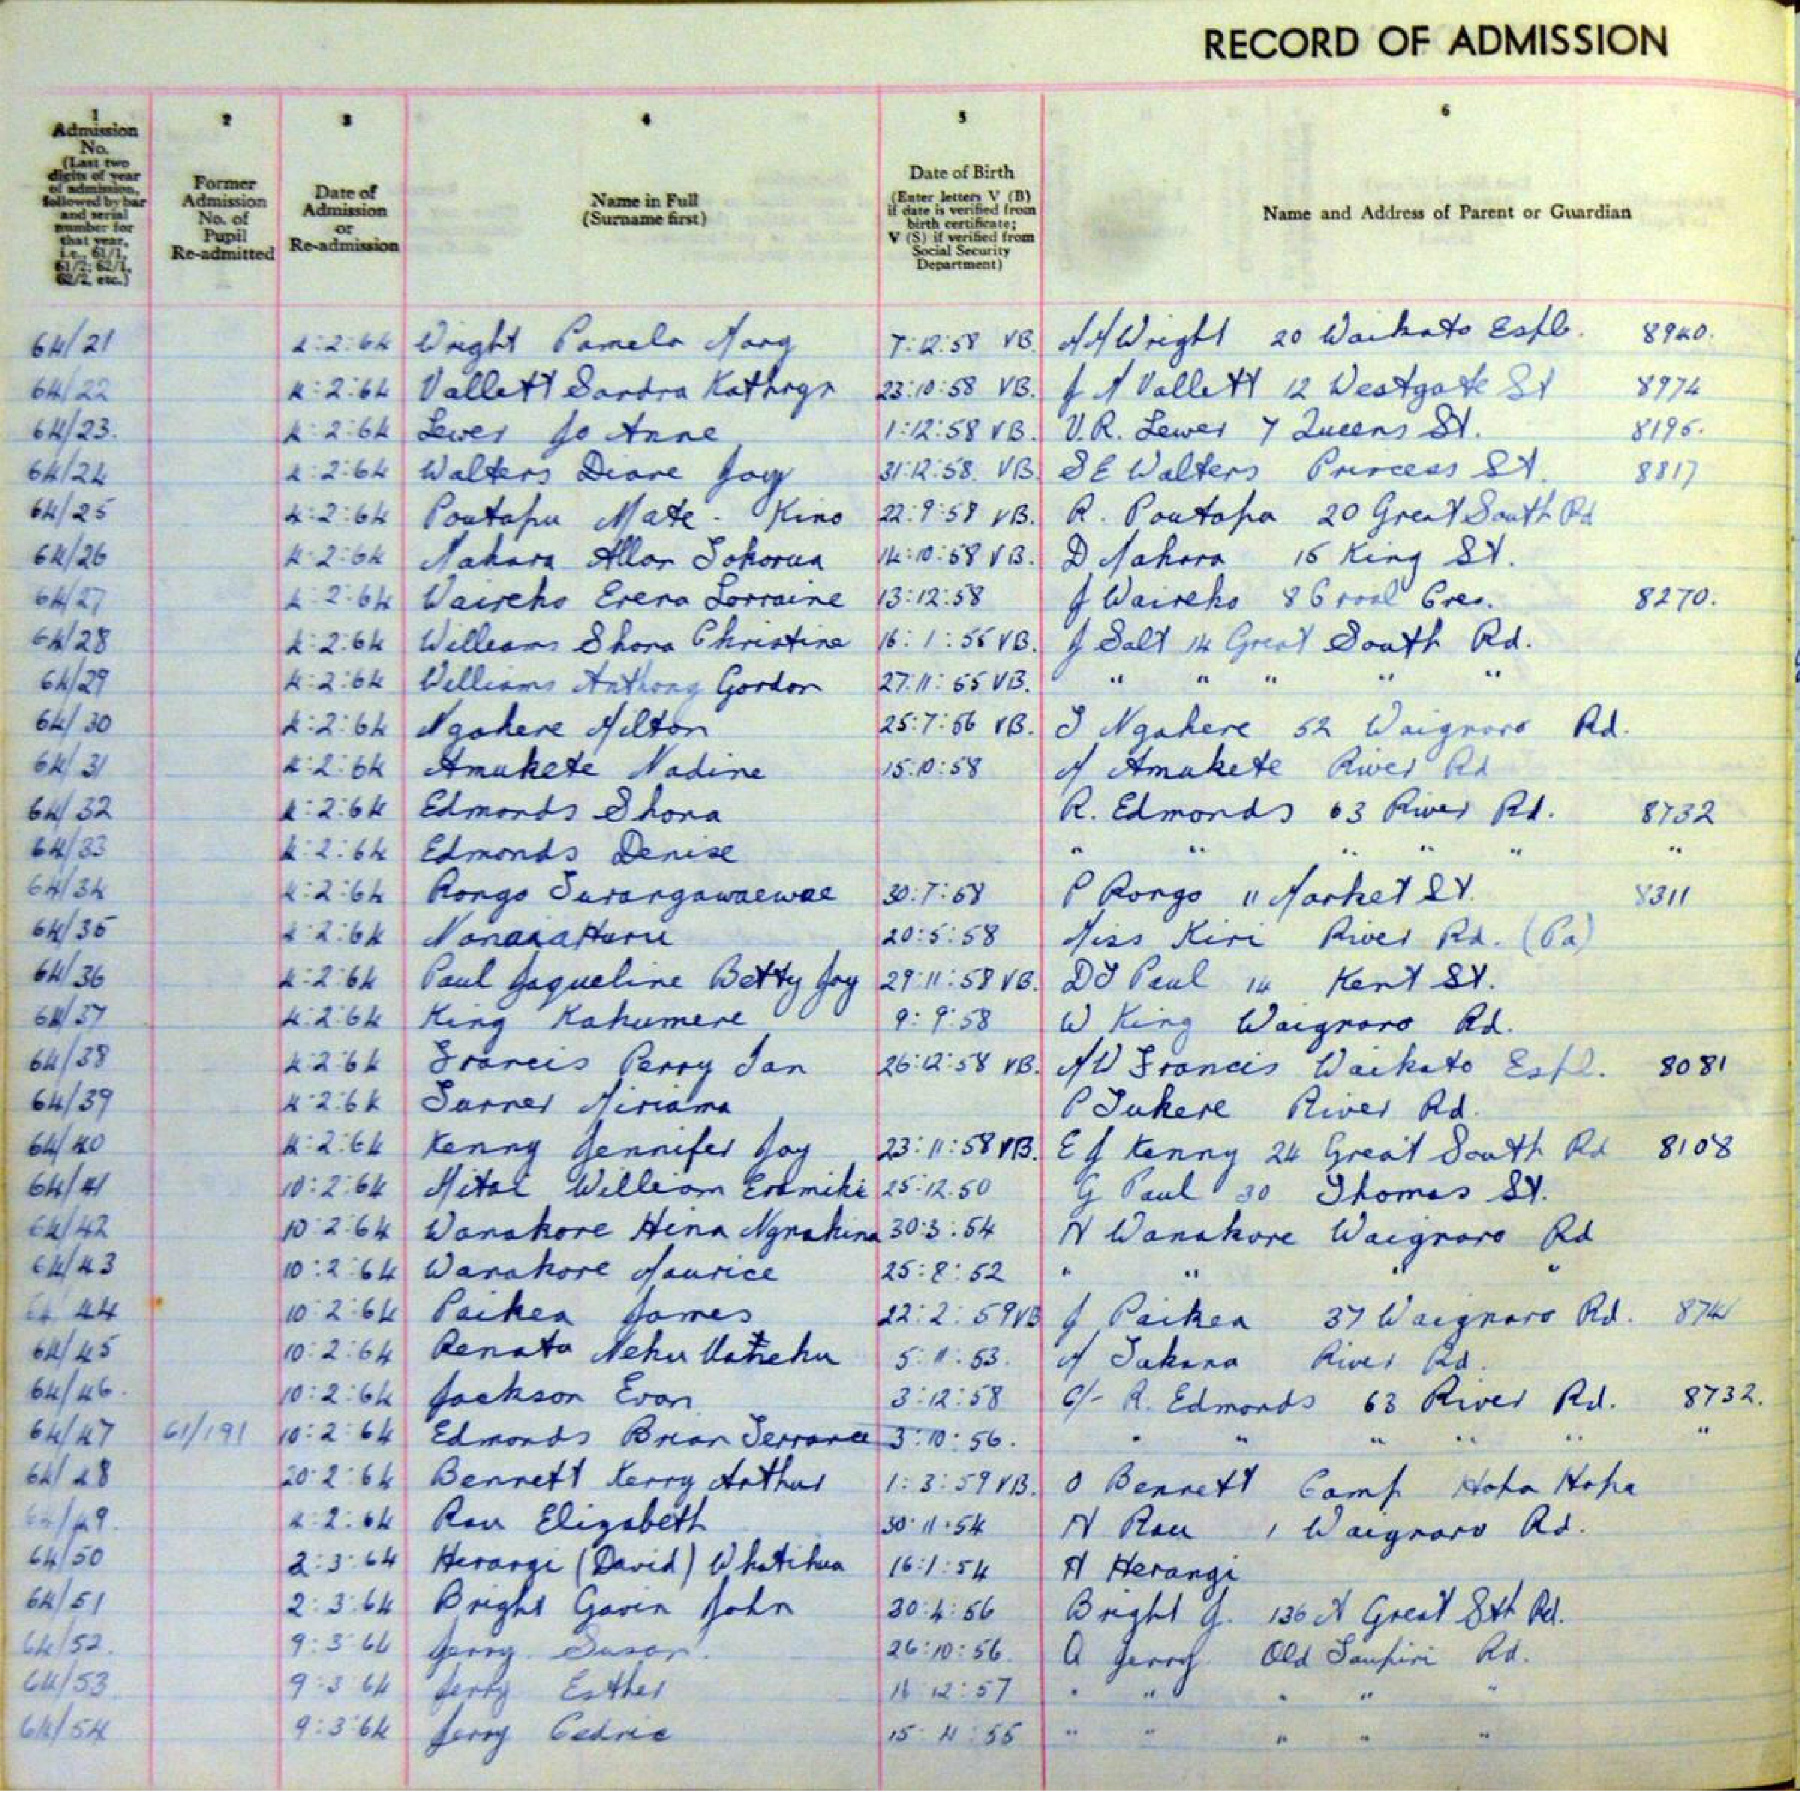 RECORD OF ADMISSION
1 2 3 4 5 6
Admission No. (Last two digits of year of admission, followed by bar and serial number for that year, i.e., 61/1, 61/2; 62/1, 62/2, etc.)
Former Admission No. of Pupil Re-admitted
Date of Admission or Re-admission
Name in Full (Surname first)
Date of Birth (Enter letters V (B) if date is verified from birth certificate; V (S) if verified from Social Security Department)
Name and Address of Parent or Guardian
64/21 4:2:64 Wright Pamela Marg 7:12:58 VB. Wright 20 Waikato Espl. 8940.
64/22 4:2:64 Vallett Sandra Kathryn 23:10:58 VB. J M Vallett 12 Westgate St 8974
64/23. 4:2:64 Lewer Jo Anne 1:12:58 VB. V.R. Lewer 7 Queens St. 8195.
64/24 4:2:64 Walters Diane Joy 31:12:58 VB. S E Walters Princess St. 8817
64/25 4:2:64 Poutapu Mate - Kino 22:9:58 VB. R. Poutapu 20 Great South Rd
64/26 4:2:64 Mahara Allan Tokorua 14:10:58 VB. D Mahara 15 King St.
64/27 4:2:64 Waireho Erena Lorraine 13:12:58 J Waireho 8 Croal Cres. 8270.
64/28 4:2:64 Williams Shona Christine 16:1:55 VB. J Salt 14 Great South Rd.
64/29 4:2:64 Williams Anthony Gordon 27:11:55 VB. " " " " "
64/30 4:2:64 Ngahere Milton 25:7:56 VB. T Ngahere 52 Waignaro Rd.
64/31 4:2:64 Amukete Nadine 15:10:58 M Amukete River Rd
64/32 4:2:64 Edmonds Shona R. Edmonds 63 River Rd. 8732
64/33 4:2:64 Edmonds Denise " " " " " "
64/34 4:2:64 Rongo Turangawaewae 30:7:58 P Rongo 11 Market St. 8311
64/35 4:2:64 20:5:58 Miss Kiri River Rd. (Pa)
64/36 4:2:64 Paul Jaqueline Betty Joy 29:11:58 VB. D T Paul 14 Kent St.
64/37 4:2:64 King Kahumere 9:9:58 W King Waignaro Rd.
64/38 4:2:64 Francis Perry Ian 26:12:58 VB. M W Francis Waikato Espl. 8081
64/39 4:2:64 Turner Miriama P Tukere River Rd.
64/40 4:2:64 Kenny Jennifer Joy 23:11:58 VB. E J Kenny 24 Great South Rd 8108
64/41 10:2:64 Mitai William Eramiki 25:12:50 G Paul 30 Thomas St.
64/42 10:2:64 Wanakore Hina Ngrahina 30:3:54 H Wanakore Waignaro Rd
64/43 10:2:64 Wanakore Maurice 25:8:52 " " " "
64/44 10:2:64 Paikea James 22:2:59 VB J Paikea 37 Waignaro Rd.
64/45 10:2:64 Renata Nehu 5:11:53. M Takana River Rd.
64/46. 10:2:64 Jackson Evan 3:12:58 c/- R. Edmonds 63 River Rd. 8732.
64/47 61/191 10:2:64 Edmonds Brian Terrance 3:10:56. " " " " " "
64/48 20:2:64 Bennett Kerry Arthur 1:3:59 VB. O Bennett Camp Hopu Hopu
64/49. 4:2:64 Rau Elizabeth 30:11:54 H Rau 1 Waignaro Rd.
64/50 2:3:64 Herangi (David) Whatihua 16:1:54 H Herangi
64/51 2:3:64 Bright Gavin John 30:4:56 Bright J. 136 A Great Sth Rd.
64/52. 9:3:64 Jerry Susan 26:10:56. Q Jerry Old Taupiri Rd.
64/53. 9:3:64 Jerry Esther 12:57 " " " " "
64/54 9:3:64 Jerry Cedric 15:4:55 " " " " "